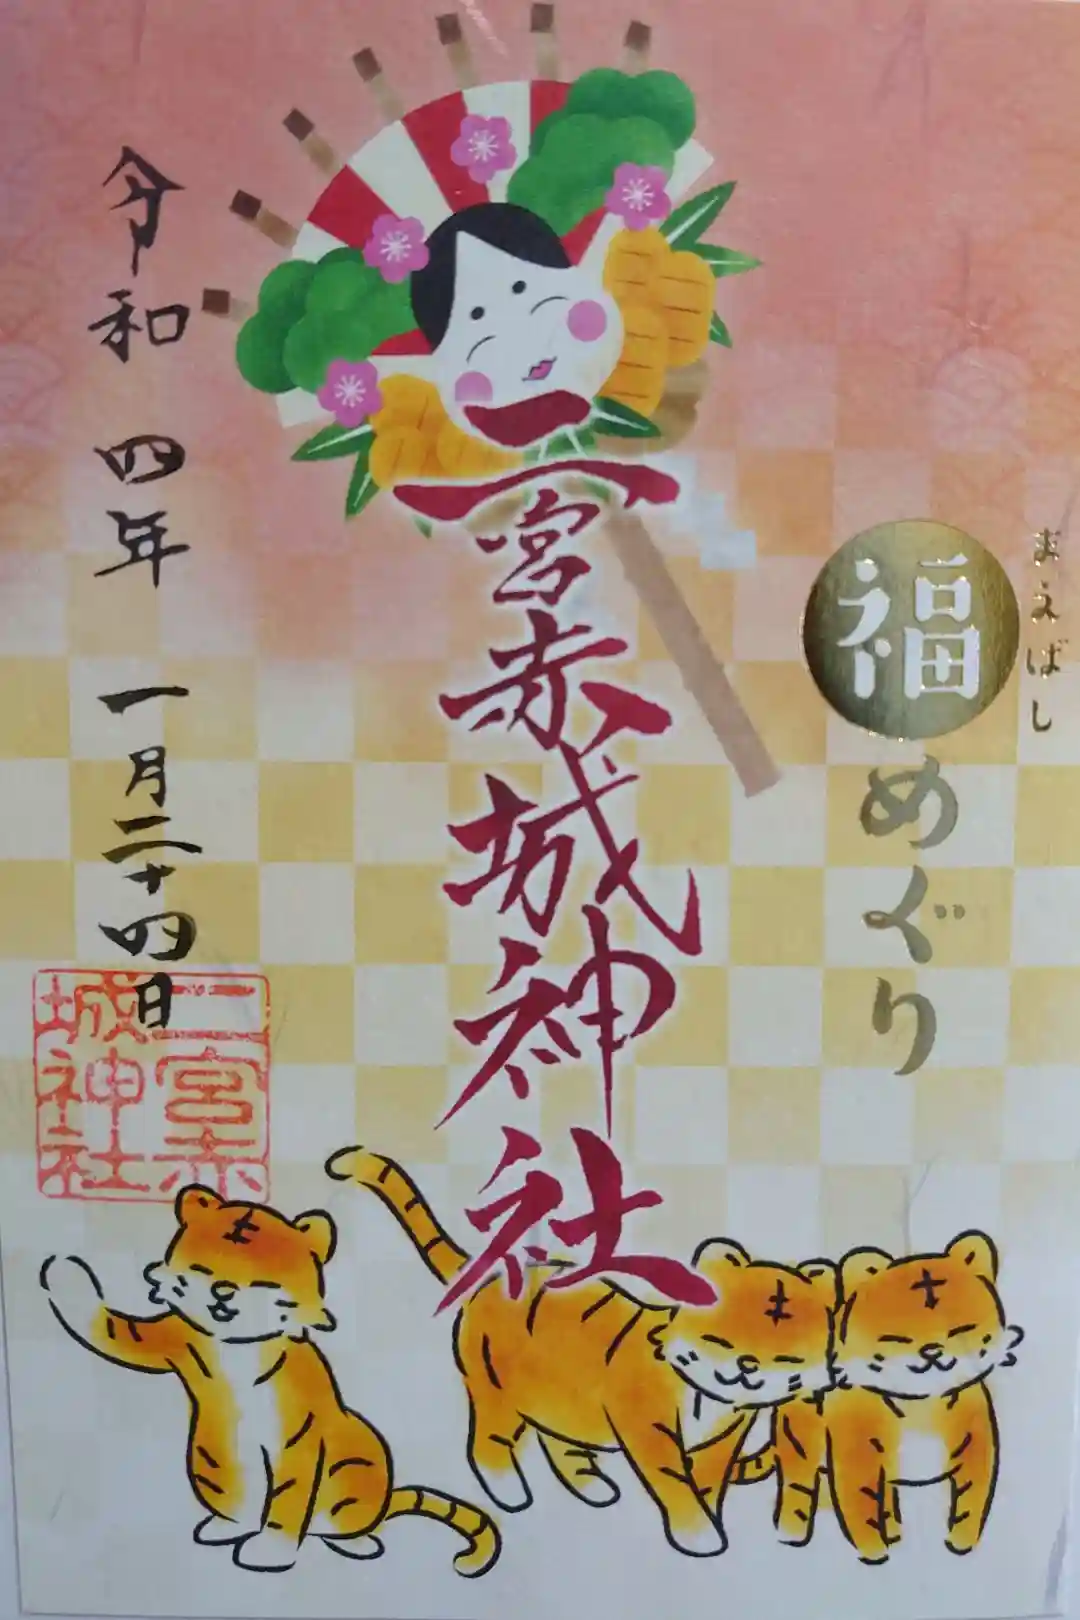 まえばし
福めぐり
二宮赤城神社
令和四年一月二十四日
二宮赤
城神社